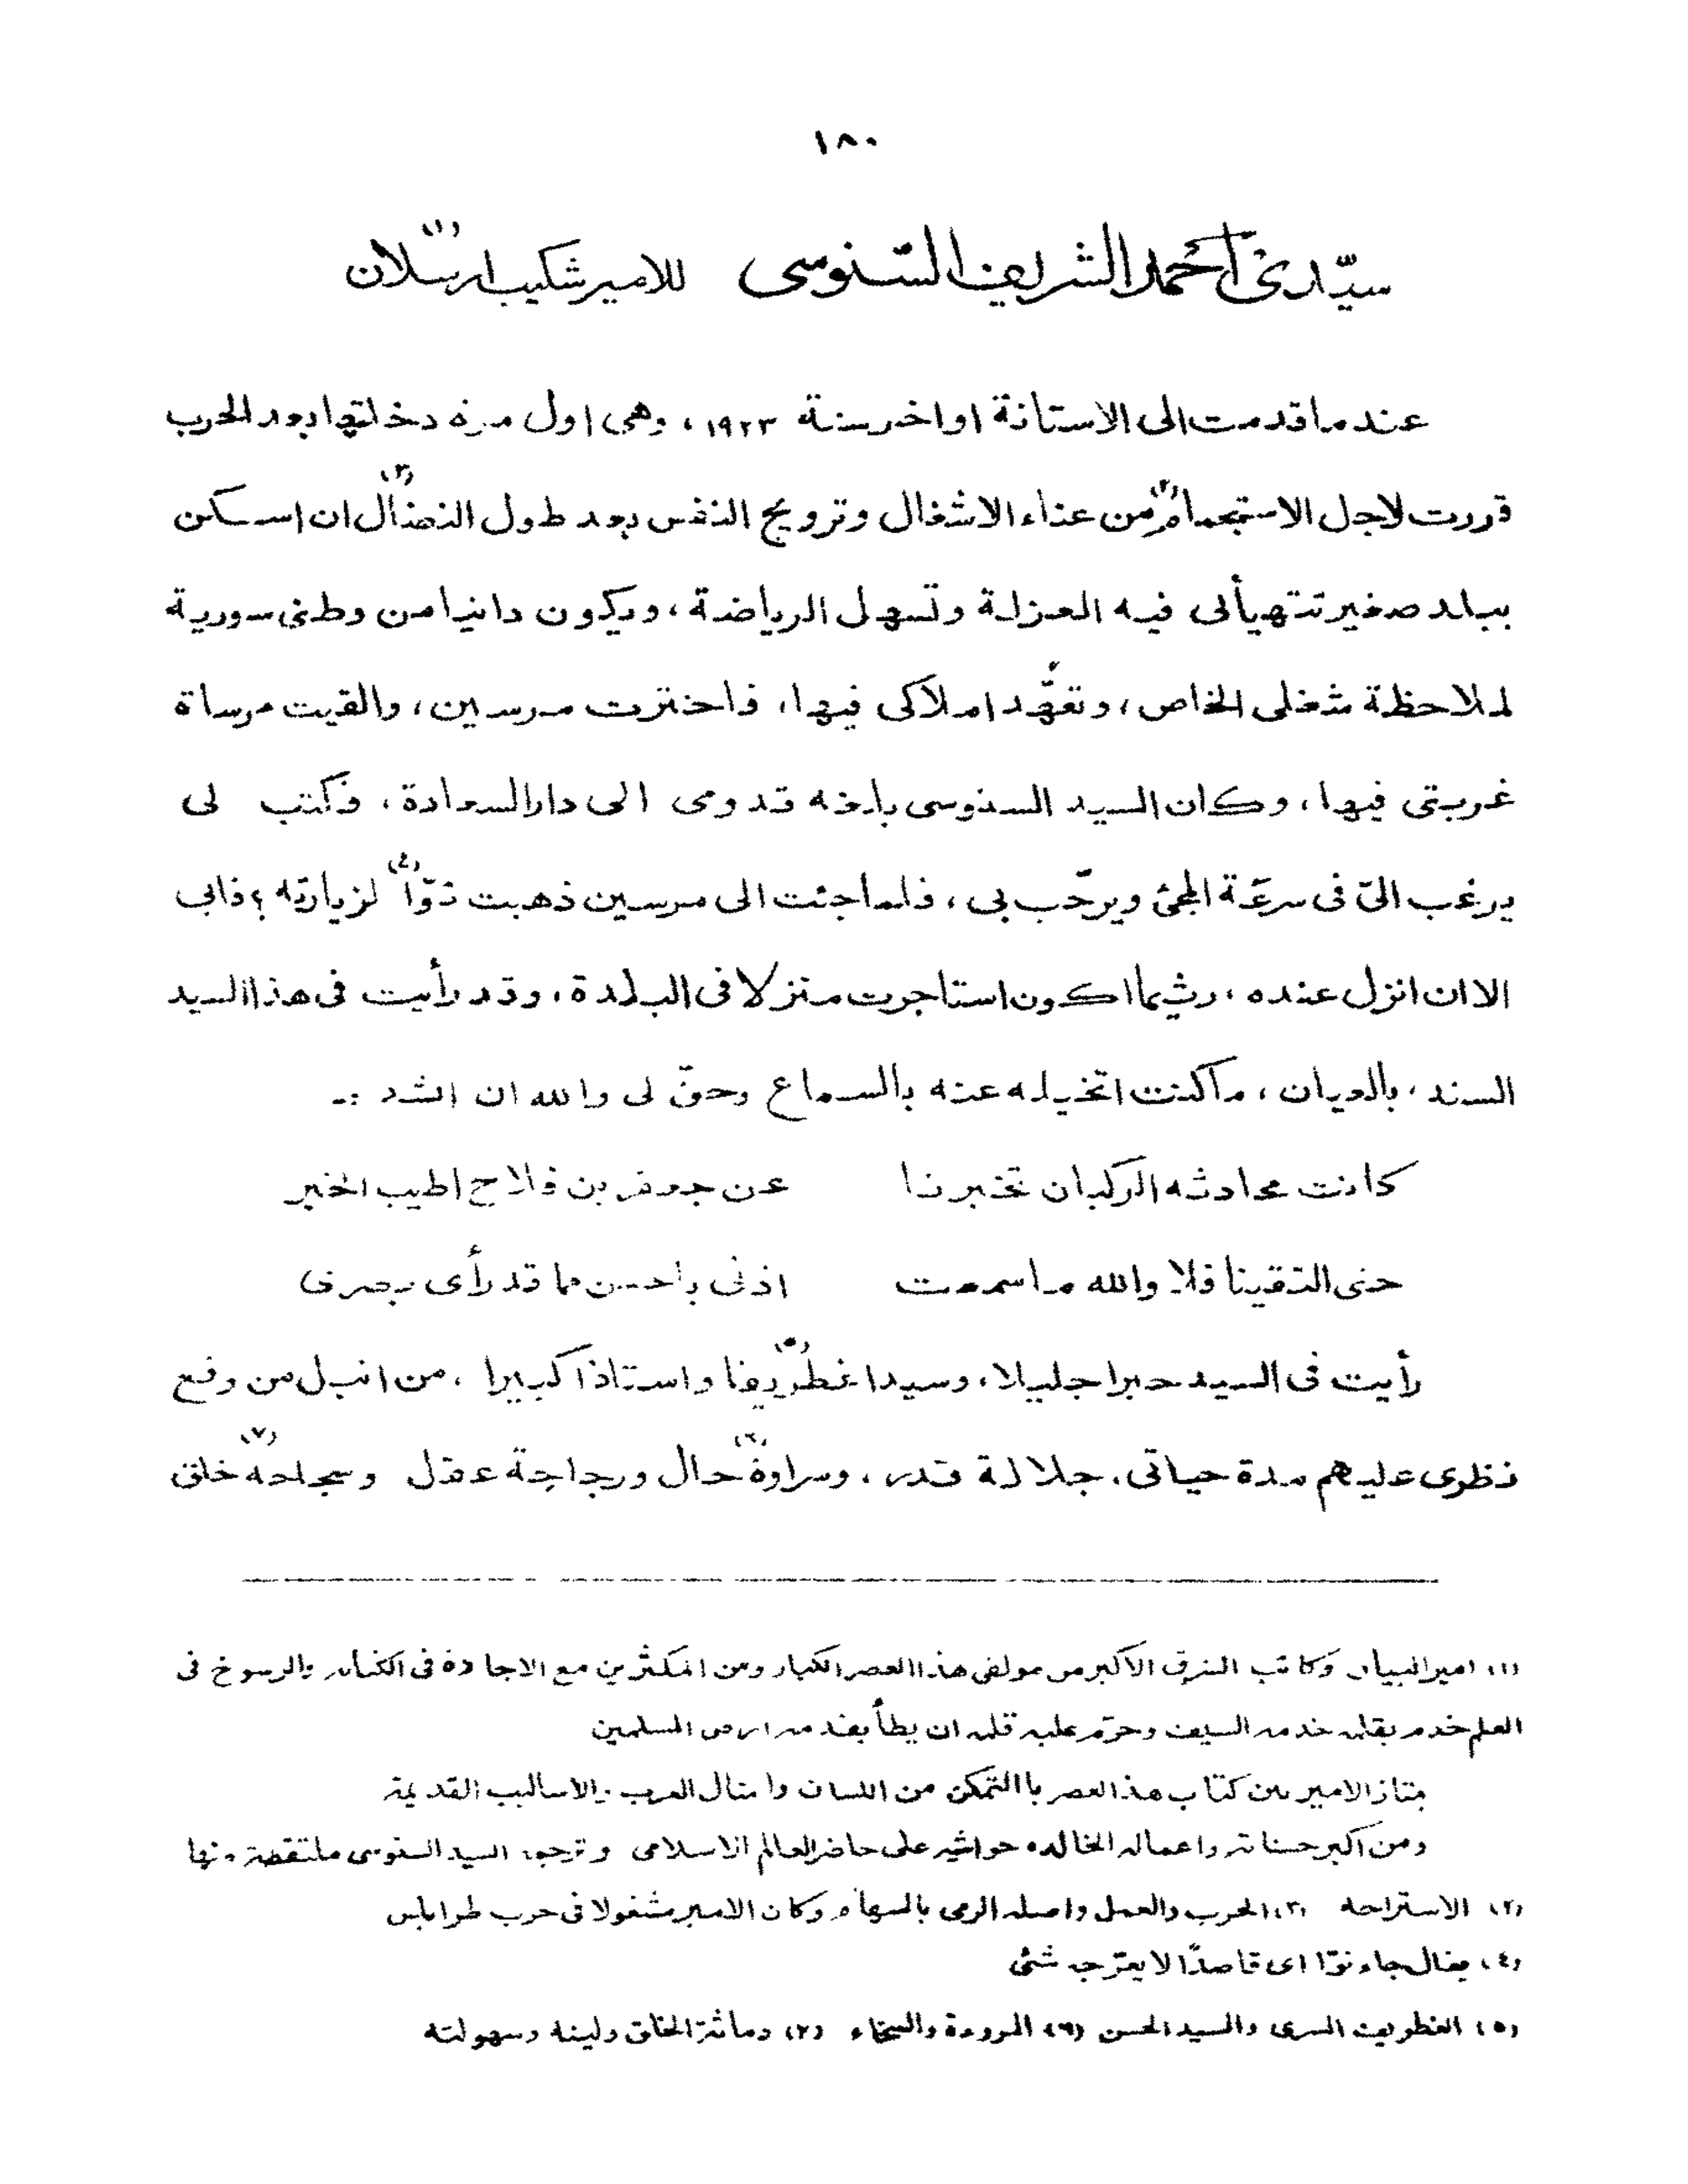 ١٨٠
سيّدى أحمد الشريف السّنوسى للامير شكيب ارسلان (١)
عند ما قدمت الى الاستانة اواخر سنة ١٩٢٣، وهى اول مرة دخلتها بعد الحرب
قررت لاجل الاستجمام (٢) من عناء الاشغال وترويح النفس بعد طول النضال (٣) ان اسكن
ببلد صغير تتهيأ لى فيه العزلة وتسهل الرياضة، ويكون دانيا من وطنى سورية
لملاحظة شغلى الخاص، وتعهّد املاكى فيها، فاخترت مرسين، والقيت مرساة
غربتى فيها، وكان السيد السنوسى بلغه قدومى الى دار السعادة، فكتب لى
يرغب الىّ فى سرعة المجئ ويرحّب بى، فلما جئت الى مرسين ذهبت توّا (٤) لزيارته ؛ فابى
الا ان انزل عنده، ريثما اكون استاجرت منزلا فى البلدة، وقد رأيت فى هذا السيد
السند، بالعيان، ما كنت اتخيله عنه بالسماع وحقّ لى والله ان انشد :-
كانت محادثه الركبان تخبرنا عن جعفر بن فلاح اطيب الخبر
حتى التقينا فلا والله ما سمعت اذنى باحسن مما قد رأى بصرى
رأيت فى السيد حبرا جليلا، وسيدا غطريفا (٥) واستاذا كبيرا، من انبل من وقع
نظرى عليهم مدة حياتى، جلالة قدر، وسراوة (٦) حال ورجاجة عقل وسجاحه (٧) خلق
(١) امير البيان وكاتب الشرق الأكبر من مولفى هذا العصر الكبار ومن المكثرين مع الاجادة فى الكتابة والرسوخ فى
العلم خدم بقلمه خدمة السيف وحرّم عليه قلمه ان يطأ بقدمه ارض المسلمين
يمتاز الامير بين كتّاب هذ العصر باالتمكن من اللسان وامثال العرب والأساليب القديمة
ومن اكبر حسناته واعماله الخالده حواشيه على حاضر العالم الاسلامى وترجمة السيد السنوسى ملتقطة منها
(٢) الاستراحه (٣) الحرب والعمل واصله الرمى بالسهام وكان الامير مشغولا فى حرب طرابلس
(٤) يقال جاء توّا اى قاصدًا لا يعرّجه شئى
(٥) الغطريف السرى والسيد الحسن (٦) المروءة والسخاء (٧) دماثة الخلق ولينه وسهولته